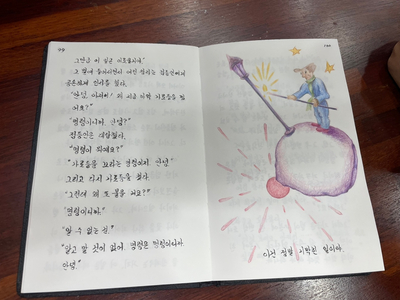 99
그 별에 들어서면서 어린 왕자는 점등인에게
공손하게 인사를 했다.
"안녕, 아저씨! 왜 지금 막 가로등을 껐
어요?"
"명령이니까. 안녕?"
점등인은 대답했다.
"명령이 뭐예요?"
"가로등을 끄라는 명령이지. 안녕."
그리고 다시 가로등을 켰다.
"그런데 왜 또 불을 켜요?"
"명령이니까."
"알 수 없는걸."
"알고 말 것이 없어. 명령은 명령이니까.
안녕."
100
이건 정말 고된 일이야.